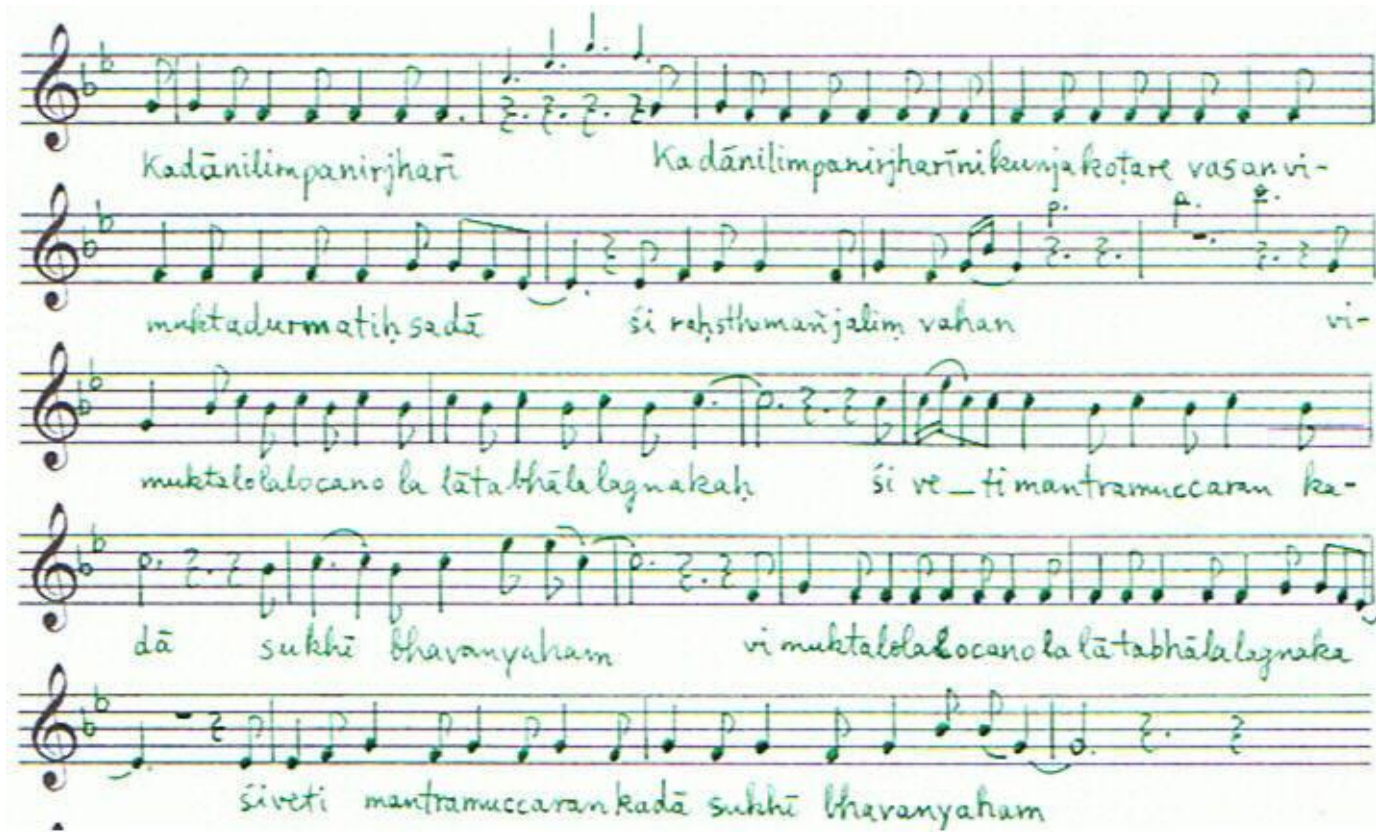 Kadānilimpanirjharī Kadānilimpanirjharīnikunjakoṭare vasanvi-
muktadurmatiḥsadā śi raḥsthamañjaliṃ vahan vi-
muktalolalocano la lāṭabhālalagnakaḥ śi ve_ti mantramuccaran ka-
dā sukhī bhavanyaham vi muktalolalocano la lāṭabhālalagnaka
śiveti mantramuccaran kadā sukhī bhavanyaham